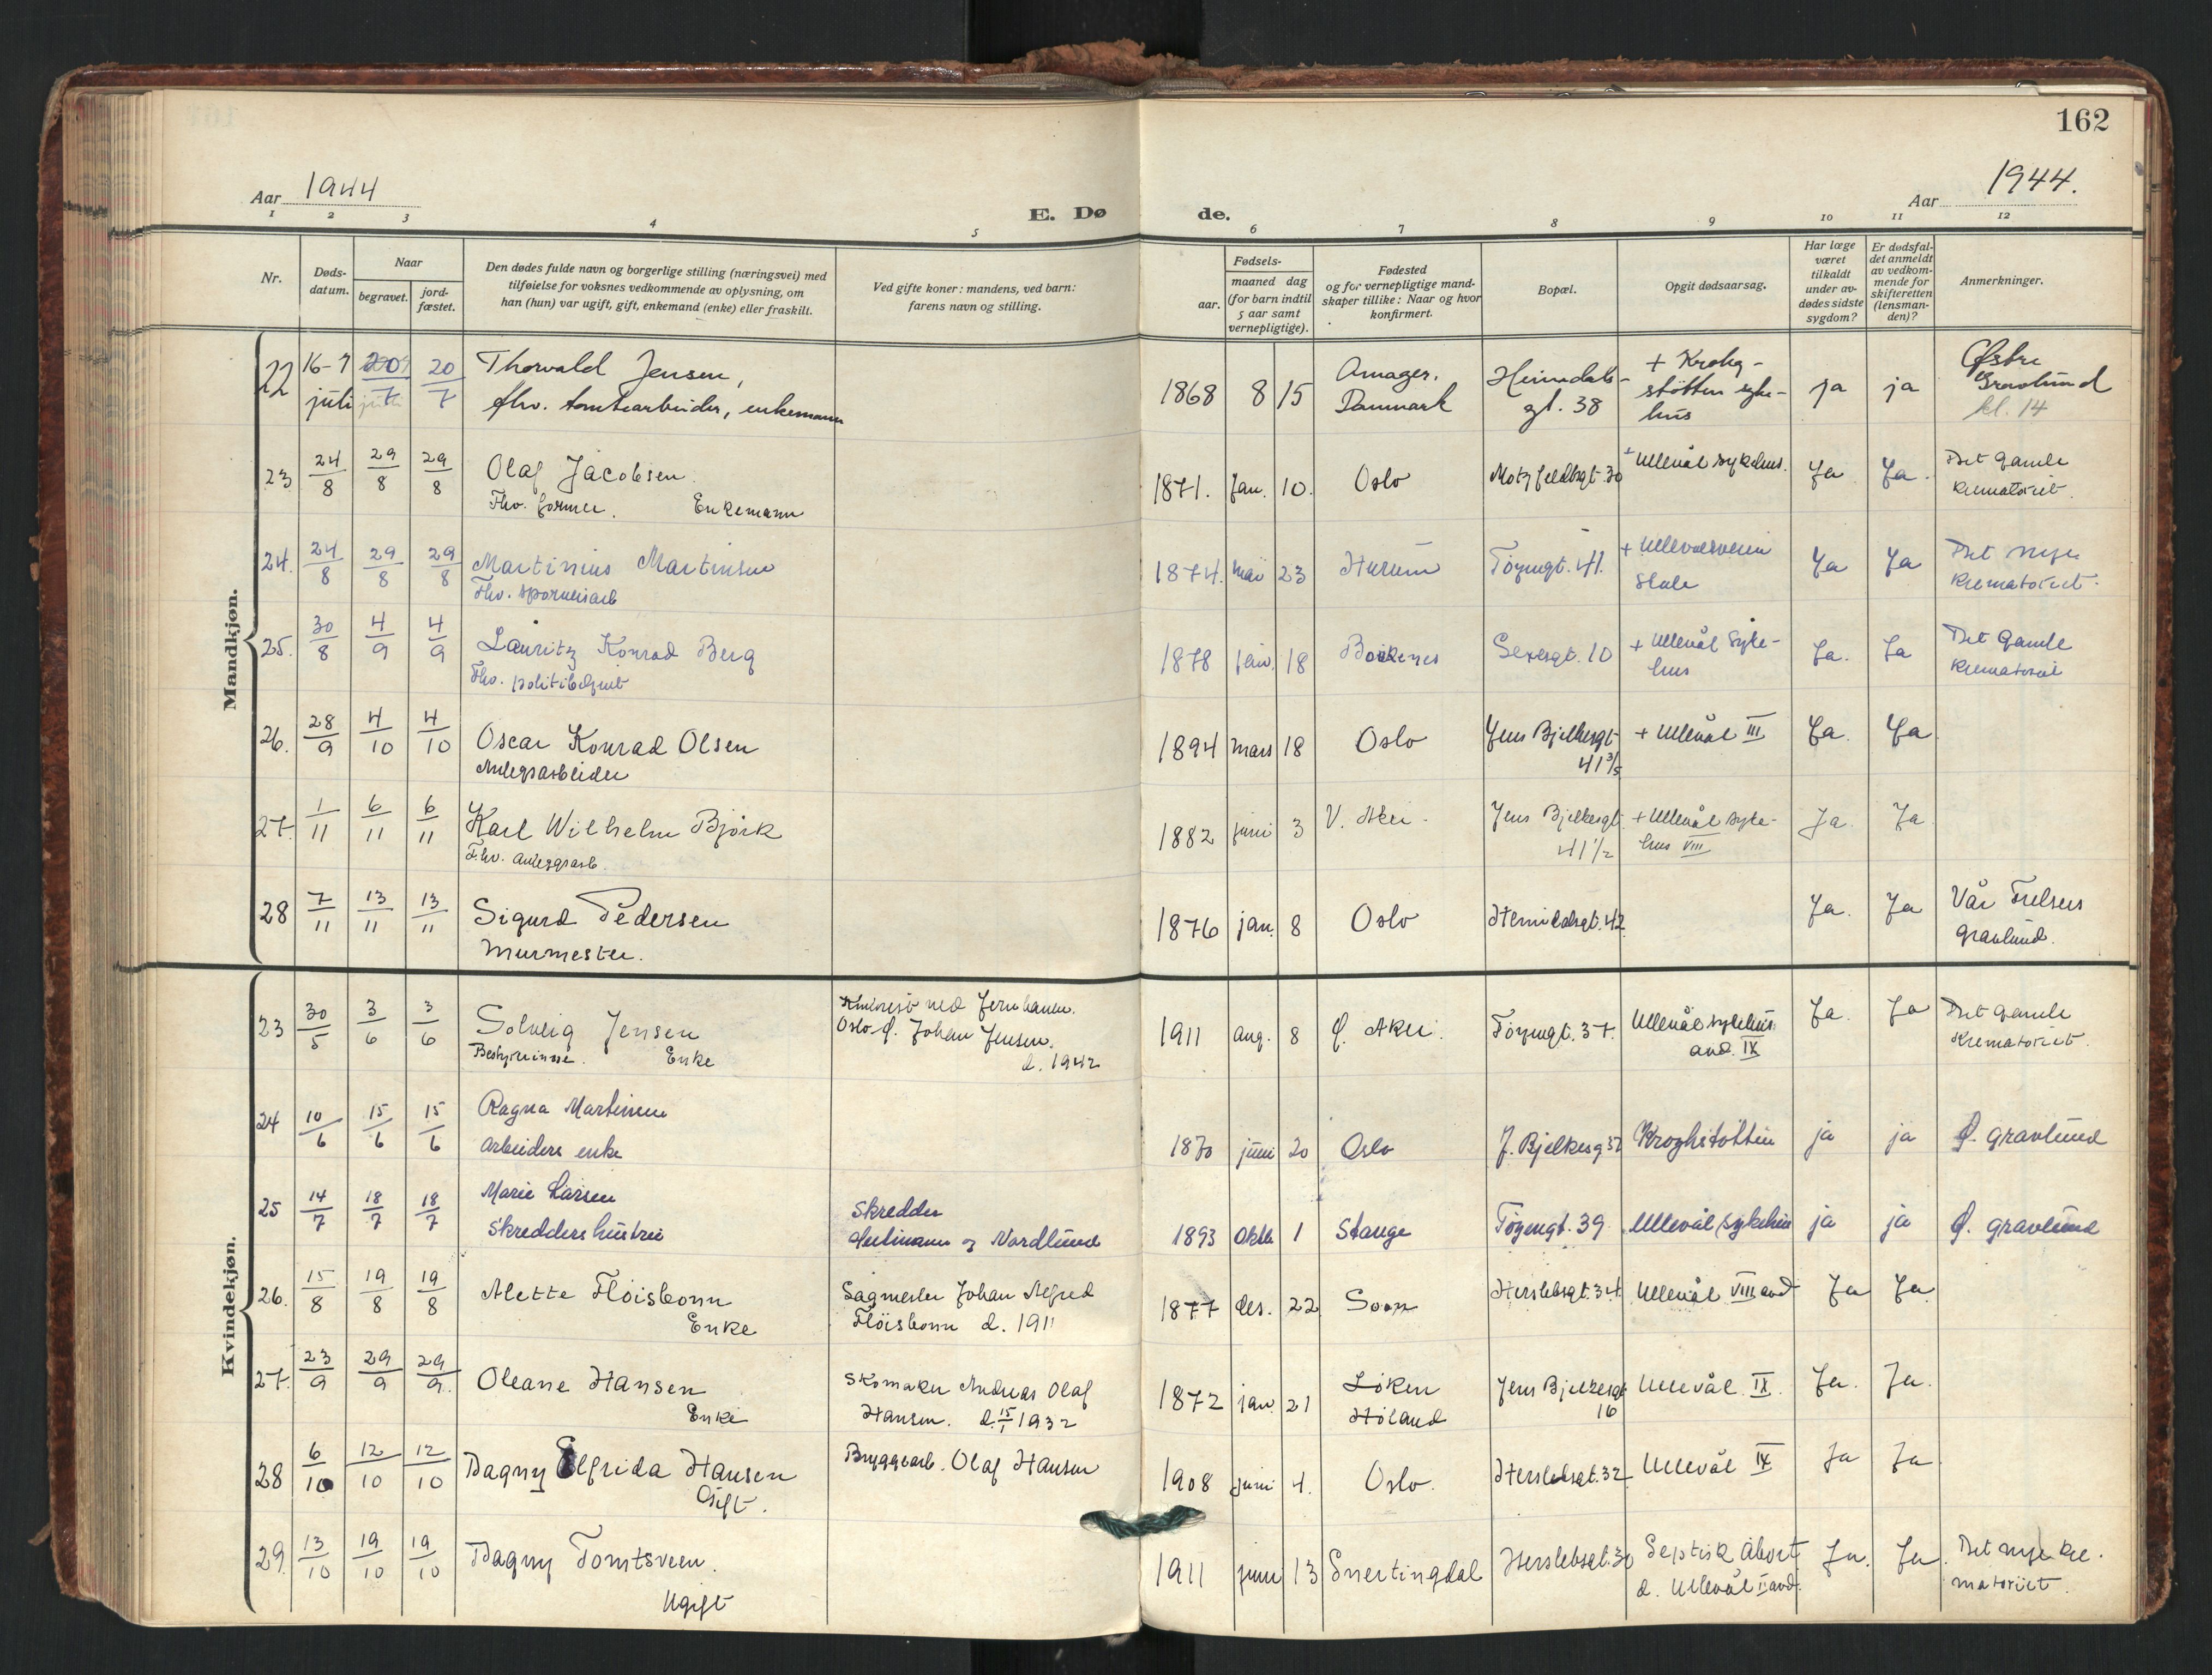 162
Aar 1944
Aar 1944.
E. Døde.
1 2 3 4 5 6 7 8 9 10 11 12
Nr.
Døds-datum.
Naar
begravet.
jord-fæstet.
Den dødes fulde navn og borgerlige stilling (næringsvei) med
tilføielse for voksnes vedkommende av oplysning, om
han (hun) var ugift, gift, enkemand (enke) eller fraskilt.
Ved gifte koner: mandens, ved barn:
farens navn og stilling.
Fødsels-
aar.
maaned dag
(for barn indtil
5 aar samt
vernepligtige).
Fødested
og for vernepligtige mand-
skaper tillike: Naar og hvor
konfirmert.
Bopæl.
Opgit dødsaarsag.
Har læge
været
tilkaldt
under av-
dødes sidste
sygdom?
Er dødsfal-
det anmeldt
av vedkom-
mende for
skifteretten
(lensman-
den)?
Anmerkninger.
Mandkjøn.
22 16-7 juli 20/7 20/7 Thorvald Jensen, fhv. tomtearbeider, enkemann 1868 8 15 Amager, Danmark Heimdalsgt. 38 + Krohgstøtten sykehus ja ja Østre Gravlund kl. 14
23 24/8 29/8 29/8 Olaf Jacobsen. Fhv. former. Enkemann 1871. Jan. 10. Oslo Motzfeldtsgt. 30 + Ullevål sykehus. Ja Ja. Det gamle krematoriet.
24. 24/8 29/8 29/8 Martinius Martinsen Fhv. sporveisarb 1874. mai 23 Hurum Tøyengt. 41. + Ja Ja Det nye krematoriet.
25. 30/8 4/9 4/9 Lauritz Konrad Berg Fhv. politibetjent 1878 jan. 18 Sexesgt. 10 + Ullevål sykehus Ja. Ja Det gamle krematoriet
26. 28/9 4/10 4/10 Oscar Konrad Olsen Anlegsarbeider 1894 mars 18 Oslo Jens Bjelkesgt 41 3/5 + Ullevål III Ja. Ja
27. 1/11 6/11 6/11 Karl Wilhelm Björk Fhv. anleggsarb. 1882 juni 3 V. Aker. Jens Bjelkesgt 41 1/2 + Ullevål sykehus VIII Ja. Ja
28 7/11 13/11 13/11 Sigurd Pedersen Murmester. 1876 jan. 8 Oslo Heimdalsgt. 42. Ja. Ja Vår Frelsers gravlund.
Kvindekjøn.
23 30/5 3/6 3/6 Solveig Jensen Bestyrerinne. Enke Kontorist ved Jernbanen. Oslo Ø. Johan Jensen. d. 1942 1911 aug. 8 Ø. Aker. Tøyengt. 37. Ullevål sykehus. avd. IX Ja. Ja Det gamle Krematoriet.
24 10/6 15/6 15/6 Ragna Martinsen arbeiders enke 1870 juni 20 Oslo J. Bjelkesg 52 Kroghstøtten ja ja Ø. gravlund
25 14/7 18/7 18/7 Marie Larsen skredders hustru skredder og Nordlund 1893 oktb 1 Stange Tøyengt. 39 Ullevål sykehus ja ja Ø. gravlund
26. 15/8 19/8 19/8 Alette Flöisbonn Enke Sagmester Johan Alfred Flöisbonn d. 1911 1877 des. 22 Soon Herslebsgt. 34 Ullevål VIII avd Ja Ja
27. 23/9 29/9 29/9. Oleane Hansen Enke Skomaker Andreas Olaf Hansen. d. 15/1 1932 1872 jan. 21 Løken Höland Jens Bjelkesgt 16 Ullevål. IX. Ja. Ja.
28 6/10 12/10 12/10 Dagny Elfrida Hansen Gift. Bryggearb. Olaf Hansen 1908 juni 4. Oslo. Herslebsgt. 32 Ullevål IX Ja Ja
29. 13/10 19/10 19/10 Dagny Tomtsveen. Ugift 1911 juni 13 Snertingdal Herslebsgt. 30 Septisk abort d. Ullevål I avd. Ja. Ja. Det nye krematoriet.